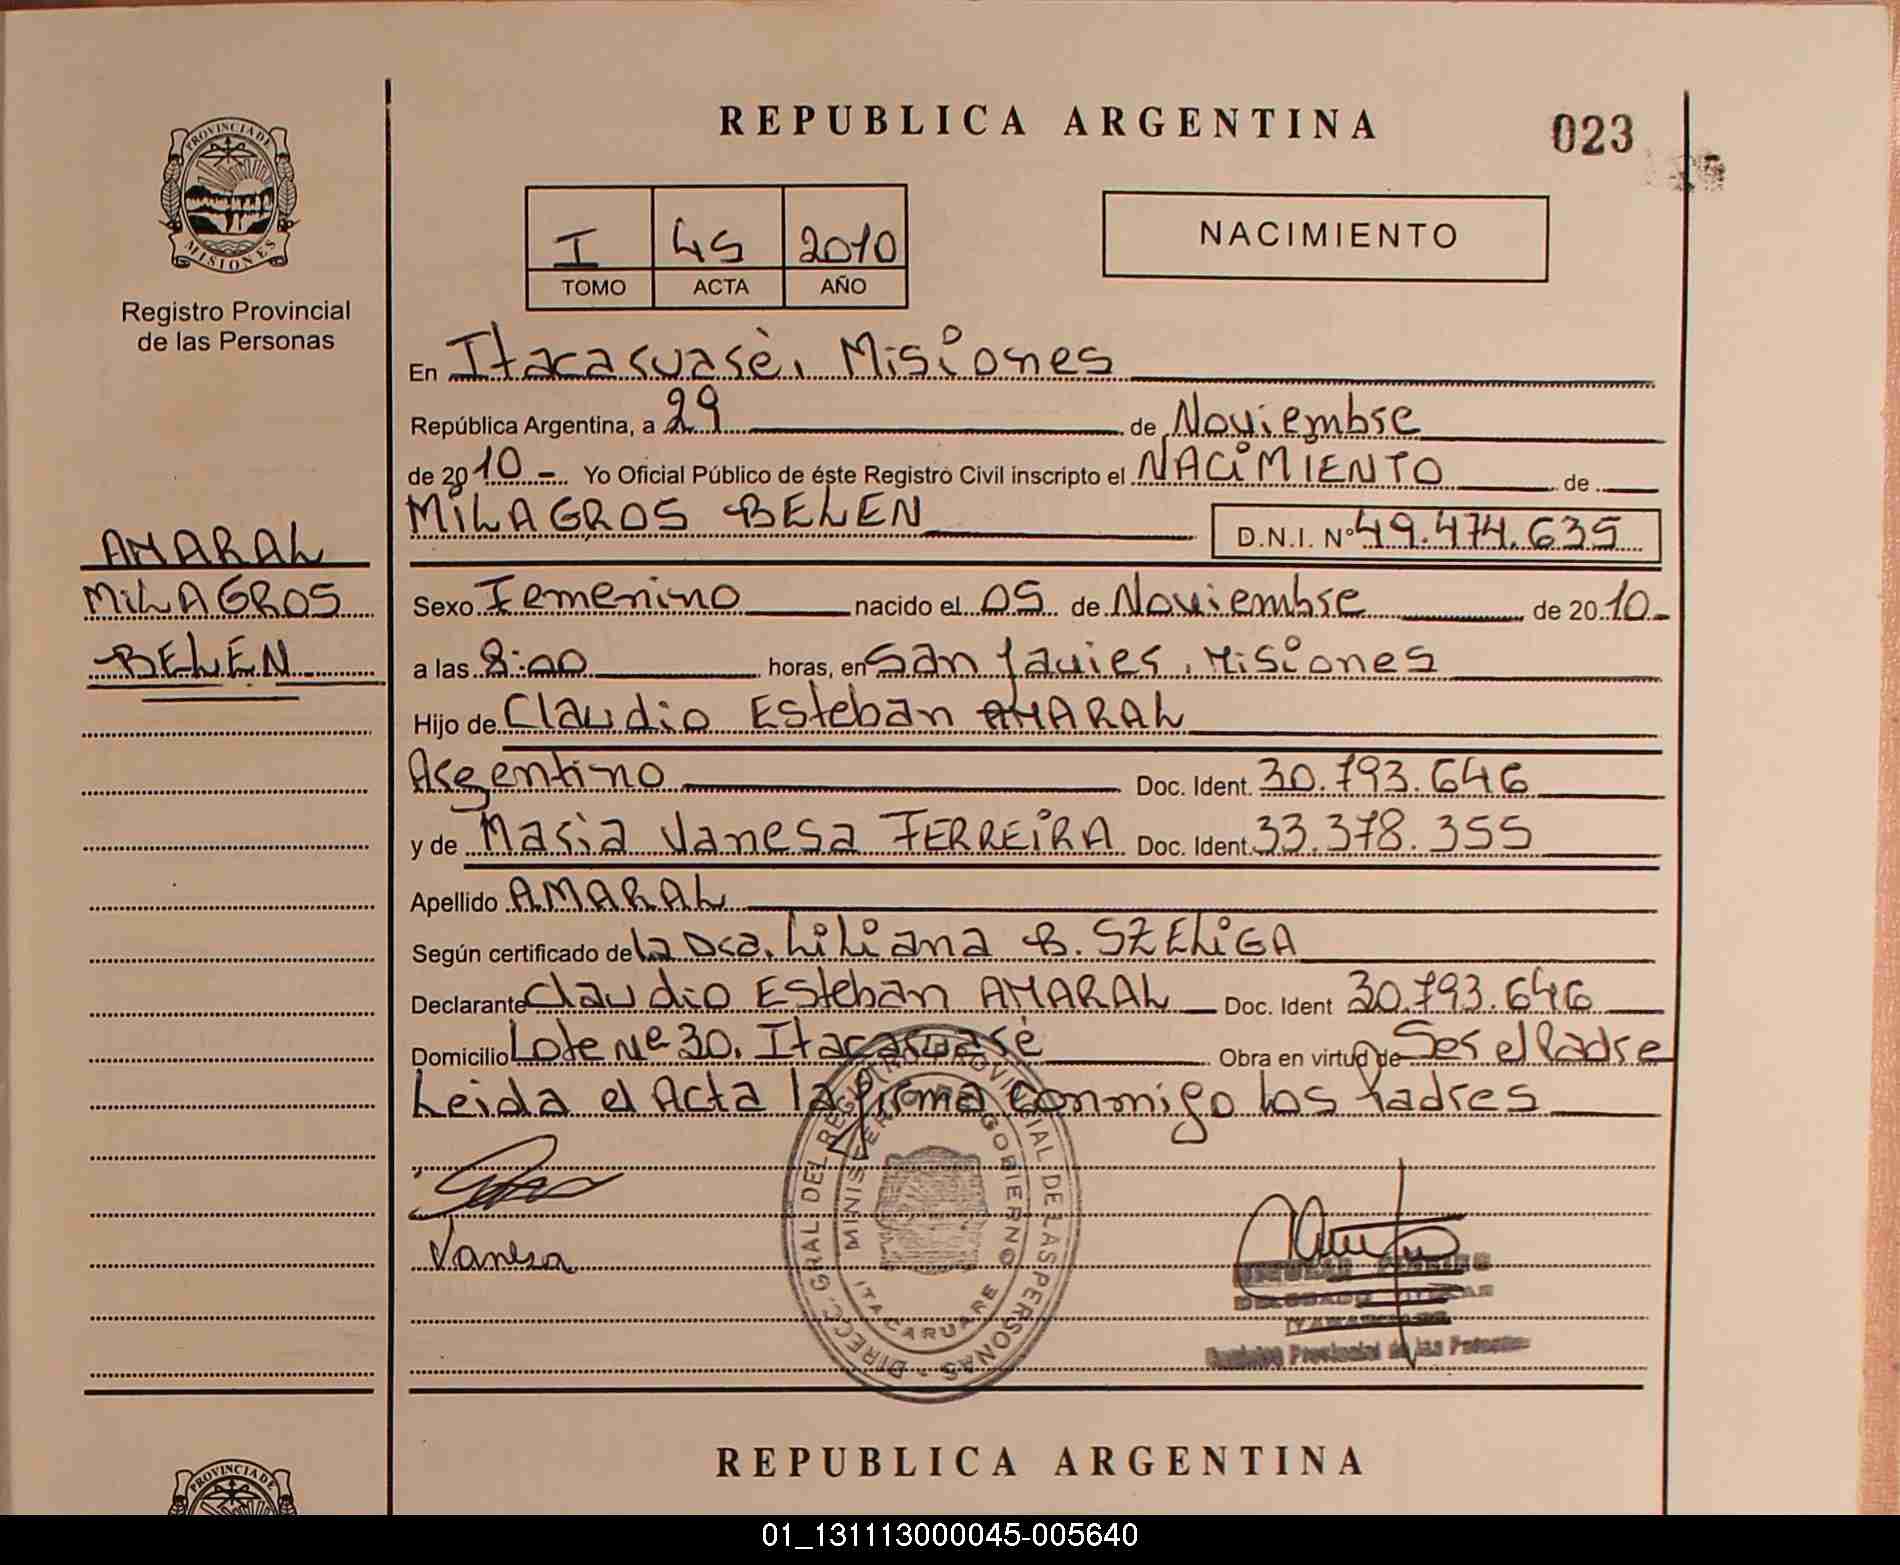 REPUBLICA ARGENTINA
023
PROVINCIA DE
MISIONES
Registro Provincial
de las Personas
I 45 2010
TOMO ACTA AÑO
NACIMIENTO
En Itacaruarè, Misiones
República Argentina, a 29 de Noviembre
de 2010.- Yo Oficial Público de éste Registro Civil inscripto el NACIMIENTO de
MILAGROS BELEN D.N.I. Nº 49.474.635
AMARAL
MILAGROS
BELEN
Sexo Femenino nacido el 05 de Noviembre de 2010-
a las 8:00 horas, en San Javier, Misiones
Hijo de Claudio Esteban AMARAL
Argentino Doc. Ident. 30.793.646
y de Maria Vanesa FERREIRA Doc. Ident. 33.378.355
Apellido AMARAL
Según certificado de la Dra. Liliana B. SZELIGA
Declarante Claudio Esteban AMARAL Doc. Ident 30.793.646
Domicilio Lote Nº 30, Itacaruarè Obra en virtud de Ser el Padre
Leida el Acta la firma conmigo los Padres
Vanesa
DIRECC. GRAL DEL REGISTRO PROVINCIAL DE LAS PERSONAS
MINISTERIO DE GOBIERNO
ITACARUARE
Provincial de las Personas
REPUBLICA ARGENTINA
PROVINCIA DE
01_131113000045-005640